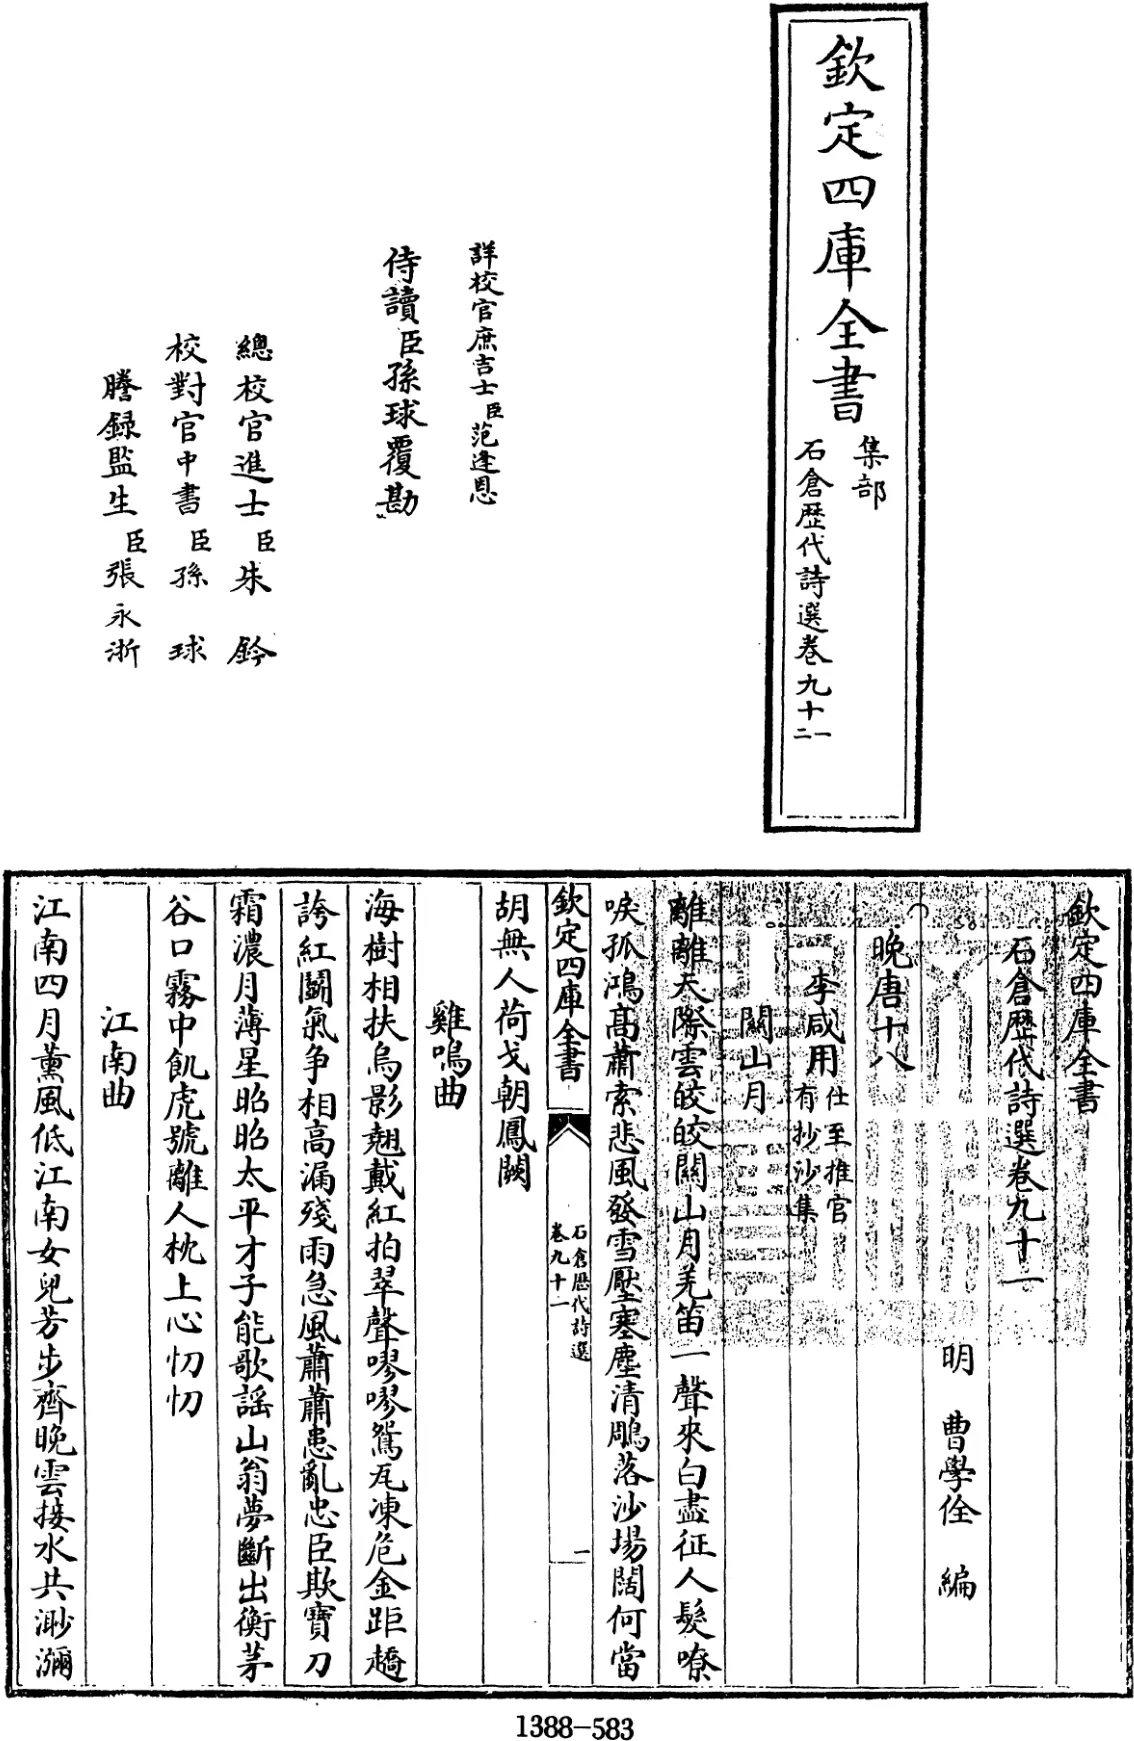 欽定四庫全書
集部
石倉歷代詩選卷九十一
二
詳校官庶吉士臣范逢恩
侍讀臣孫球覆勘
總校官進士臣朱鈐
校對官中書臣孫球
謄録監生臣張永浙
欽定四庫全書
石倉歷代詩選卷九十一
明 曹學佺 編
晚唐十八
李咸用
仕至推官
有抄沙集
關山月
離離天際雲皎皎關山月羌笛一聲來白盡征人髮嘹
唳孤鴻高蕭索悲風發雪壓塞塵清鵰落沙場闊何當
欽定四庫全書
石倉歷代詩選
卷九十一
一
胡無人荷戈朝鳳闕
雞鳴曲
海樹相扶烏影翹戴紅拍翠聲嘐嘐鴛瓦凍危金距趫
誇紅鬬氣争相高漏殘雨急風蕭蕭患亂忠臣欺寶刀
霜濃月薄星昭昭太平才子能歌謡山翁夢斷出衡茅
谷口霧中飢虎號離人枕上心忉忉
江南曲
江南四月薰風低江南女兒芳步齊晚雲接水共渺瀰
1388-583